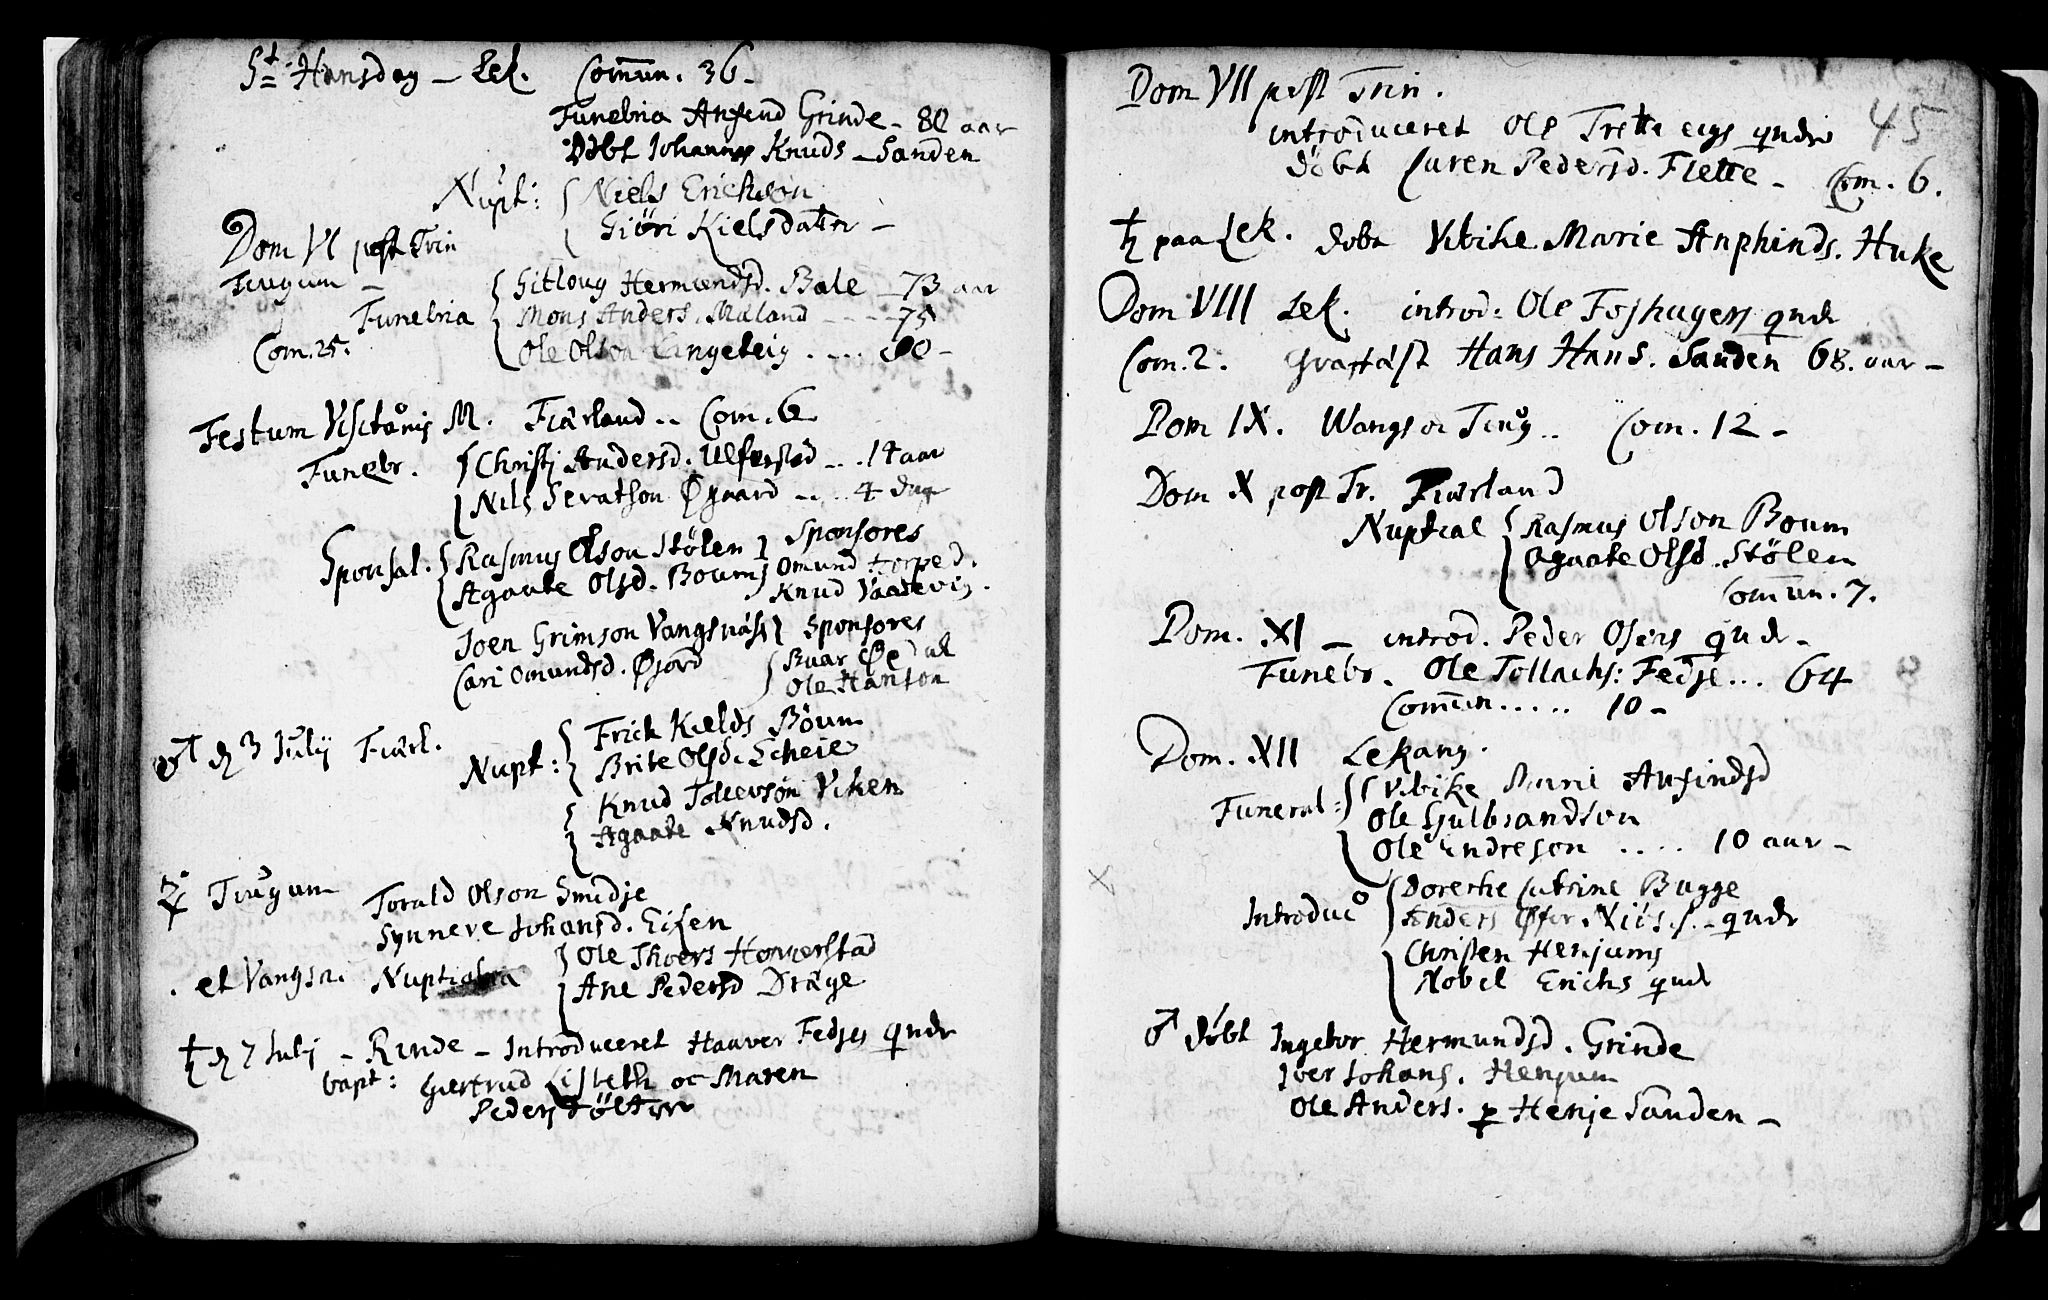 St. Hansdag – Lek. Com̅un. 36 –
Funebria Anfind Grinde – 80 aar
Döbt Johannes Knuds – Sanden
Nupt: Niels Erichson
Giöri Kielsdatter –
Dom VI post Trin
Tiugum –
Funebria
Com. 25.
Sitloug Hermundsd. Bale – 73 aar
Mons Anders. Mæland – – – 75
Ole Olson Langeteig . . . . 80 –
Festum Visitatōnis M. Fiærland . . Com. 6
Funebr. Christj Andersd. Ulfestad . . . 14 aar
Nils Seratson Øgaard . . . . 4 dage
Sponsal. Rasmus Olson Stölen
Agaate Olsd. Boums
Sponsores
Omund Torped.
Knud Vaatevig.
Joen Grimson Vangsnäss
Cari Omundsd. Øford
Sponsores
Ivar Øedal
Ole Hanson
♂ d 3 Julij Fiærl.
Nupt: Erick Kields Böum
Brite Olsd. Scheie
Knud Tollevson Viken
Agaate Knudsd.
♃ Tiugum Torald Olson Smedje
Synneve Johansd. Eisen
et Vangsn. Nuptialia
Ole Shoers Hommerstad
Ane Pedersd Dræge
♄ d 7 Julij – Rinde – Introduceret Haaver Fedjes qude
bapt: Giertrud Lisbeth oc Maren
Peders Döttre
45
Dom VII post Trin.
introduceret Ole Trette eigs qude
döbt Caren Pedersd. Flette – Com. 6.
♄ paa Lek. döbt Vibike Marie Anphinds. Huke
Dom VIII Lek. introd: Ole Foshagens qude
Com. 2. Graffäst Hans Hans. Sanden 68. aar –
Dom IX. Wangs oc Tiug . . Com. 12 –
Dom X post Tr. Fiærland
Nuptial Rasmus Olson Boum
Agaate Olsd. Stölen
Com̅un. 7.
Dom. XI – introd. Peder Osens qude –
Funebr. Ole Tollachs: Fedje . . . 64
Com̅un . . . . . 10 –
Dom. XII Lekang.
Funeral: Vibike Marie Anfindsd
Ole Gulbrandson
Ole Endreson . . . . 10 aar –
Introduc̊ Dorethe Catrine Bugge
Anders Øfer Niis. – qude
Christen Henjums
Nobel Erichs qude
♂ döbt Ingebor Hermundsd. Grinde
Iver Johans. Henjum
Ole Anders. p Henje Sanden –